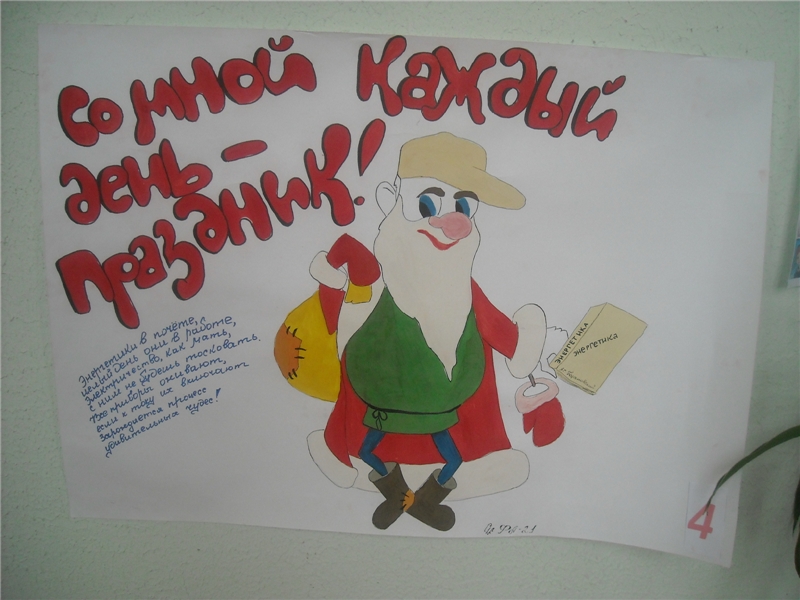 Со мной каждый
день -
праздник!
Энергетики в почёте,
целый день они в работе,
Электричество, как мать,
с ним не будешь тосковать.
Все приборы оживают,
если к току их включают
Зарождается процесс
удивительных чудес!
ЭНЕРГЕТИКА
ЭНЕРГЕТИКА
4